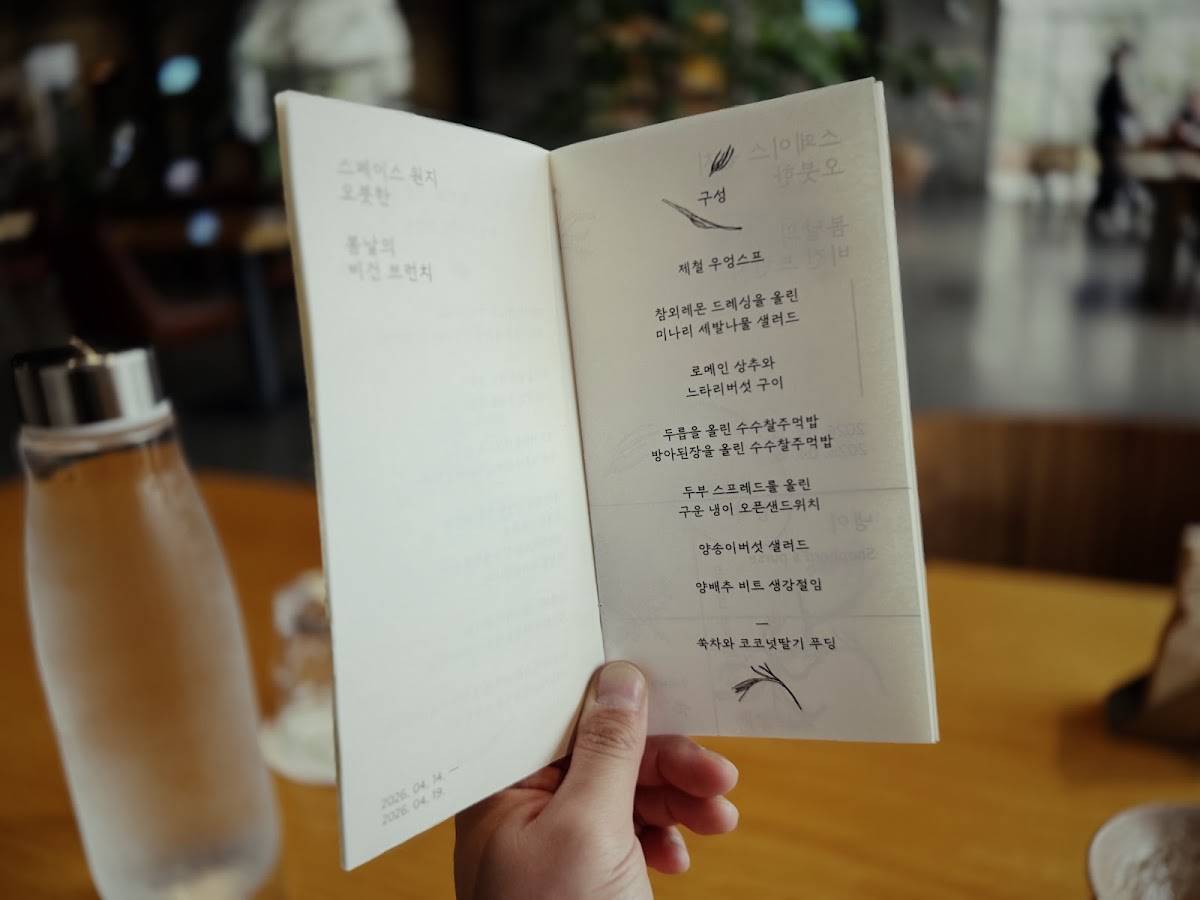 스페이스 원지
오붓한
봄날의
비건 브런치
2026. 04. 14. —
2026. 04. 19.
구성
제철 우엉스프
참외레몬 드레싱을 올린
미나리 세발나물 샐러드
로메인 상추와
느타리버섯 구이
두릅을 올린 수수찰주먹밥
방아된장을 올린 수수찰주먹밥
두부 스프레드를 올린
구운 냉이 오픈샌드위치
양송이버섯 샐러드
양배추 비트 생강절임
—
쑥차와 코코넛딸기 푸딩